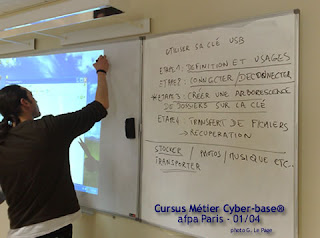 UTILISER SA CLÉ USB
ETAPE 1 : DEFINITION ET USAGES
ETAPE 2 : CONNECTER / DECONNECTER
* ETAPE 3 : CRÉER UNE ARBORESCENCE
DE DOSSIERS SUR LA CLÉ
ETAPE 4 TRANSFERT DE FICHIERS
→ RÉCUPERATION
STOCKER / PHOTOS / MUSIQUE ETC..
TRANSPORTER
Cursus Métier Cyber-base®
afpa Paris - 01/04
photo G. Le Page